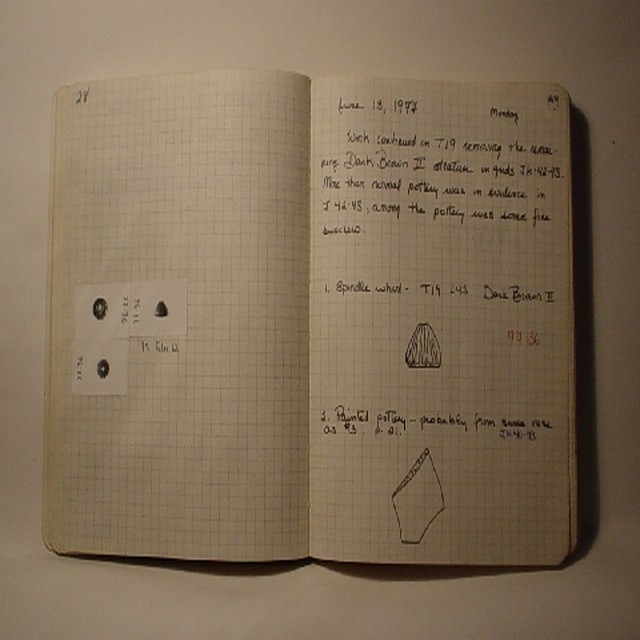 28
77-36
77-36
77-36
29
June 13, 1977
Monday
Work continued on T19 removing the remai-
ning Dark Brown II stratum in grids JK-42-43.
More than normal pottery was in evidence in
J 42-43, among the pottery was some fine
bucchero.
1. Spindle whorl - T19 J43 Dark Brown II
77-36
2. Painted pottery - probably from same vase
as #3 p. 21.
JK42-43